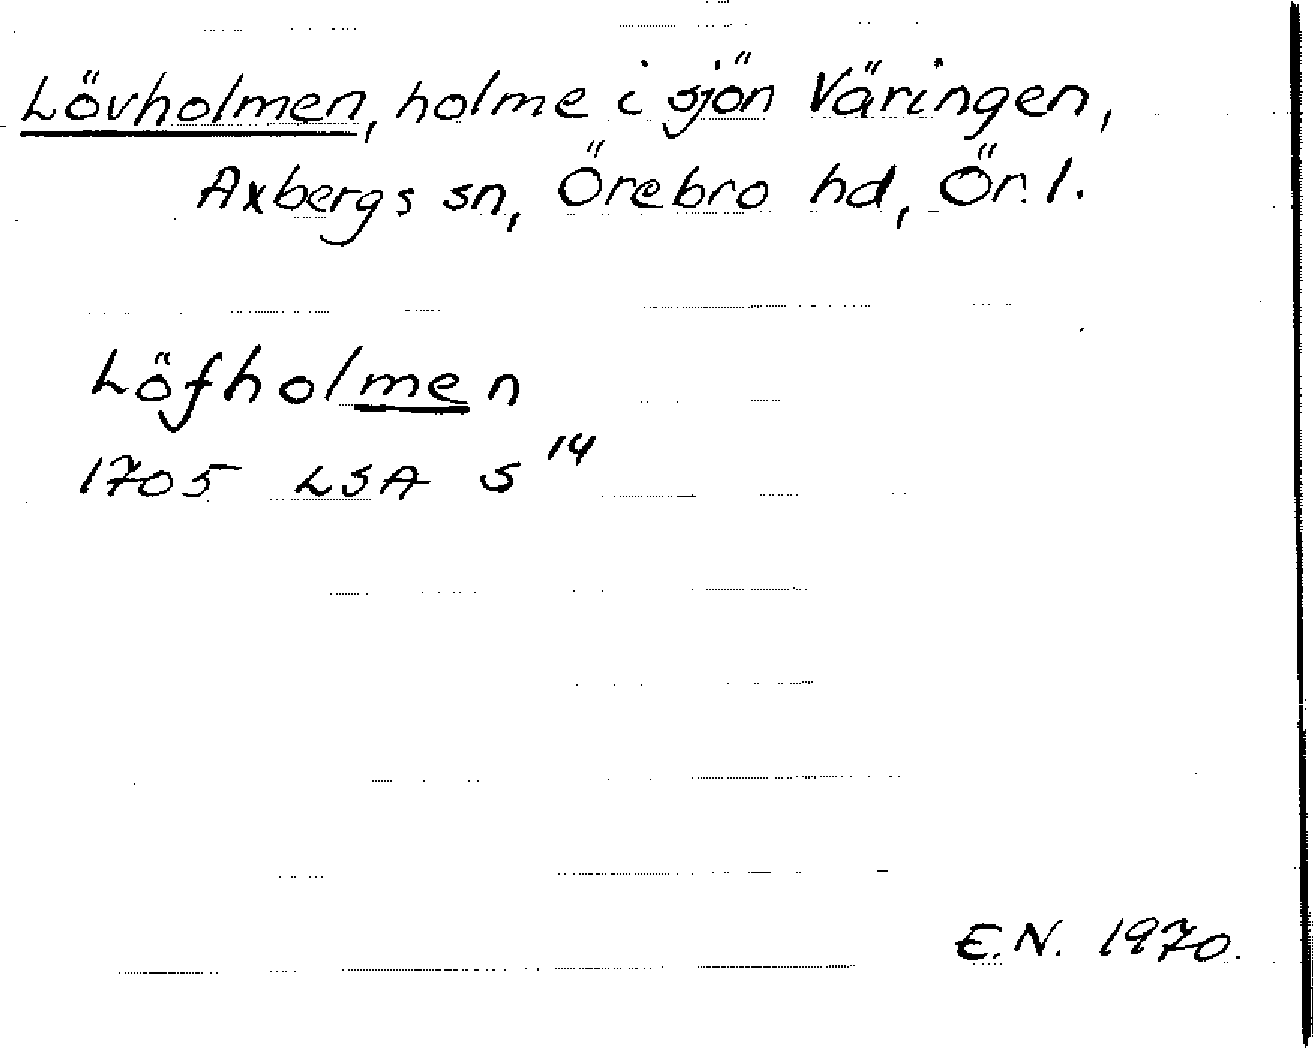 Lövholmen, holme i sjön Väringen,
Axbergs sn, Örebro hd, Ör. l.
Löfholmen
1705 LSA S 14
E.N. 1970.